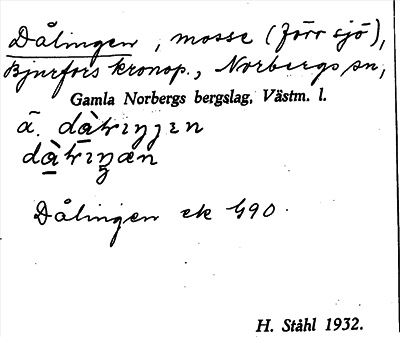 Dålingen, mosse (förr sjö),
Bjurfors kronop., Norbergs sn,
Gamla Norbergs bergslag, Västm. l.
Dålingen ek 490.
H. Ståhl 1932.